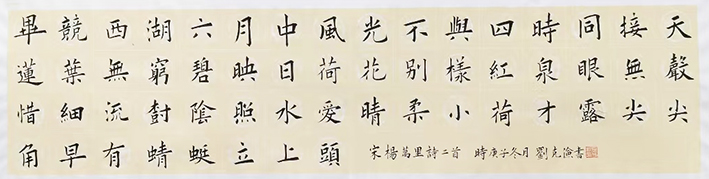 畢競西湖六月中風光不與四時同接天
蓮葉無窮碧映日荷花別樣紅泉眼無聲
惜細流尌陰照水愛晴柔小荷才露尖尖
角早有蜻蜓立上頭
宋楊萬里詩二首 時庚子冬月 劉克書